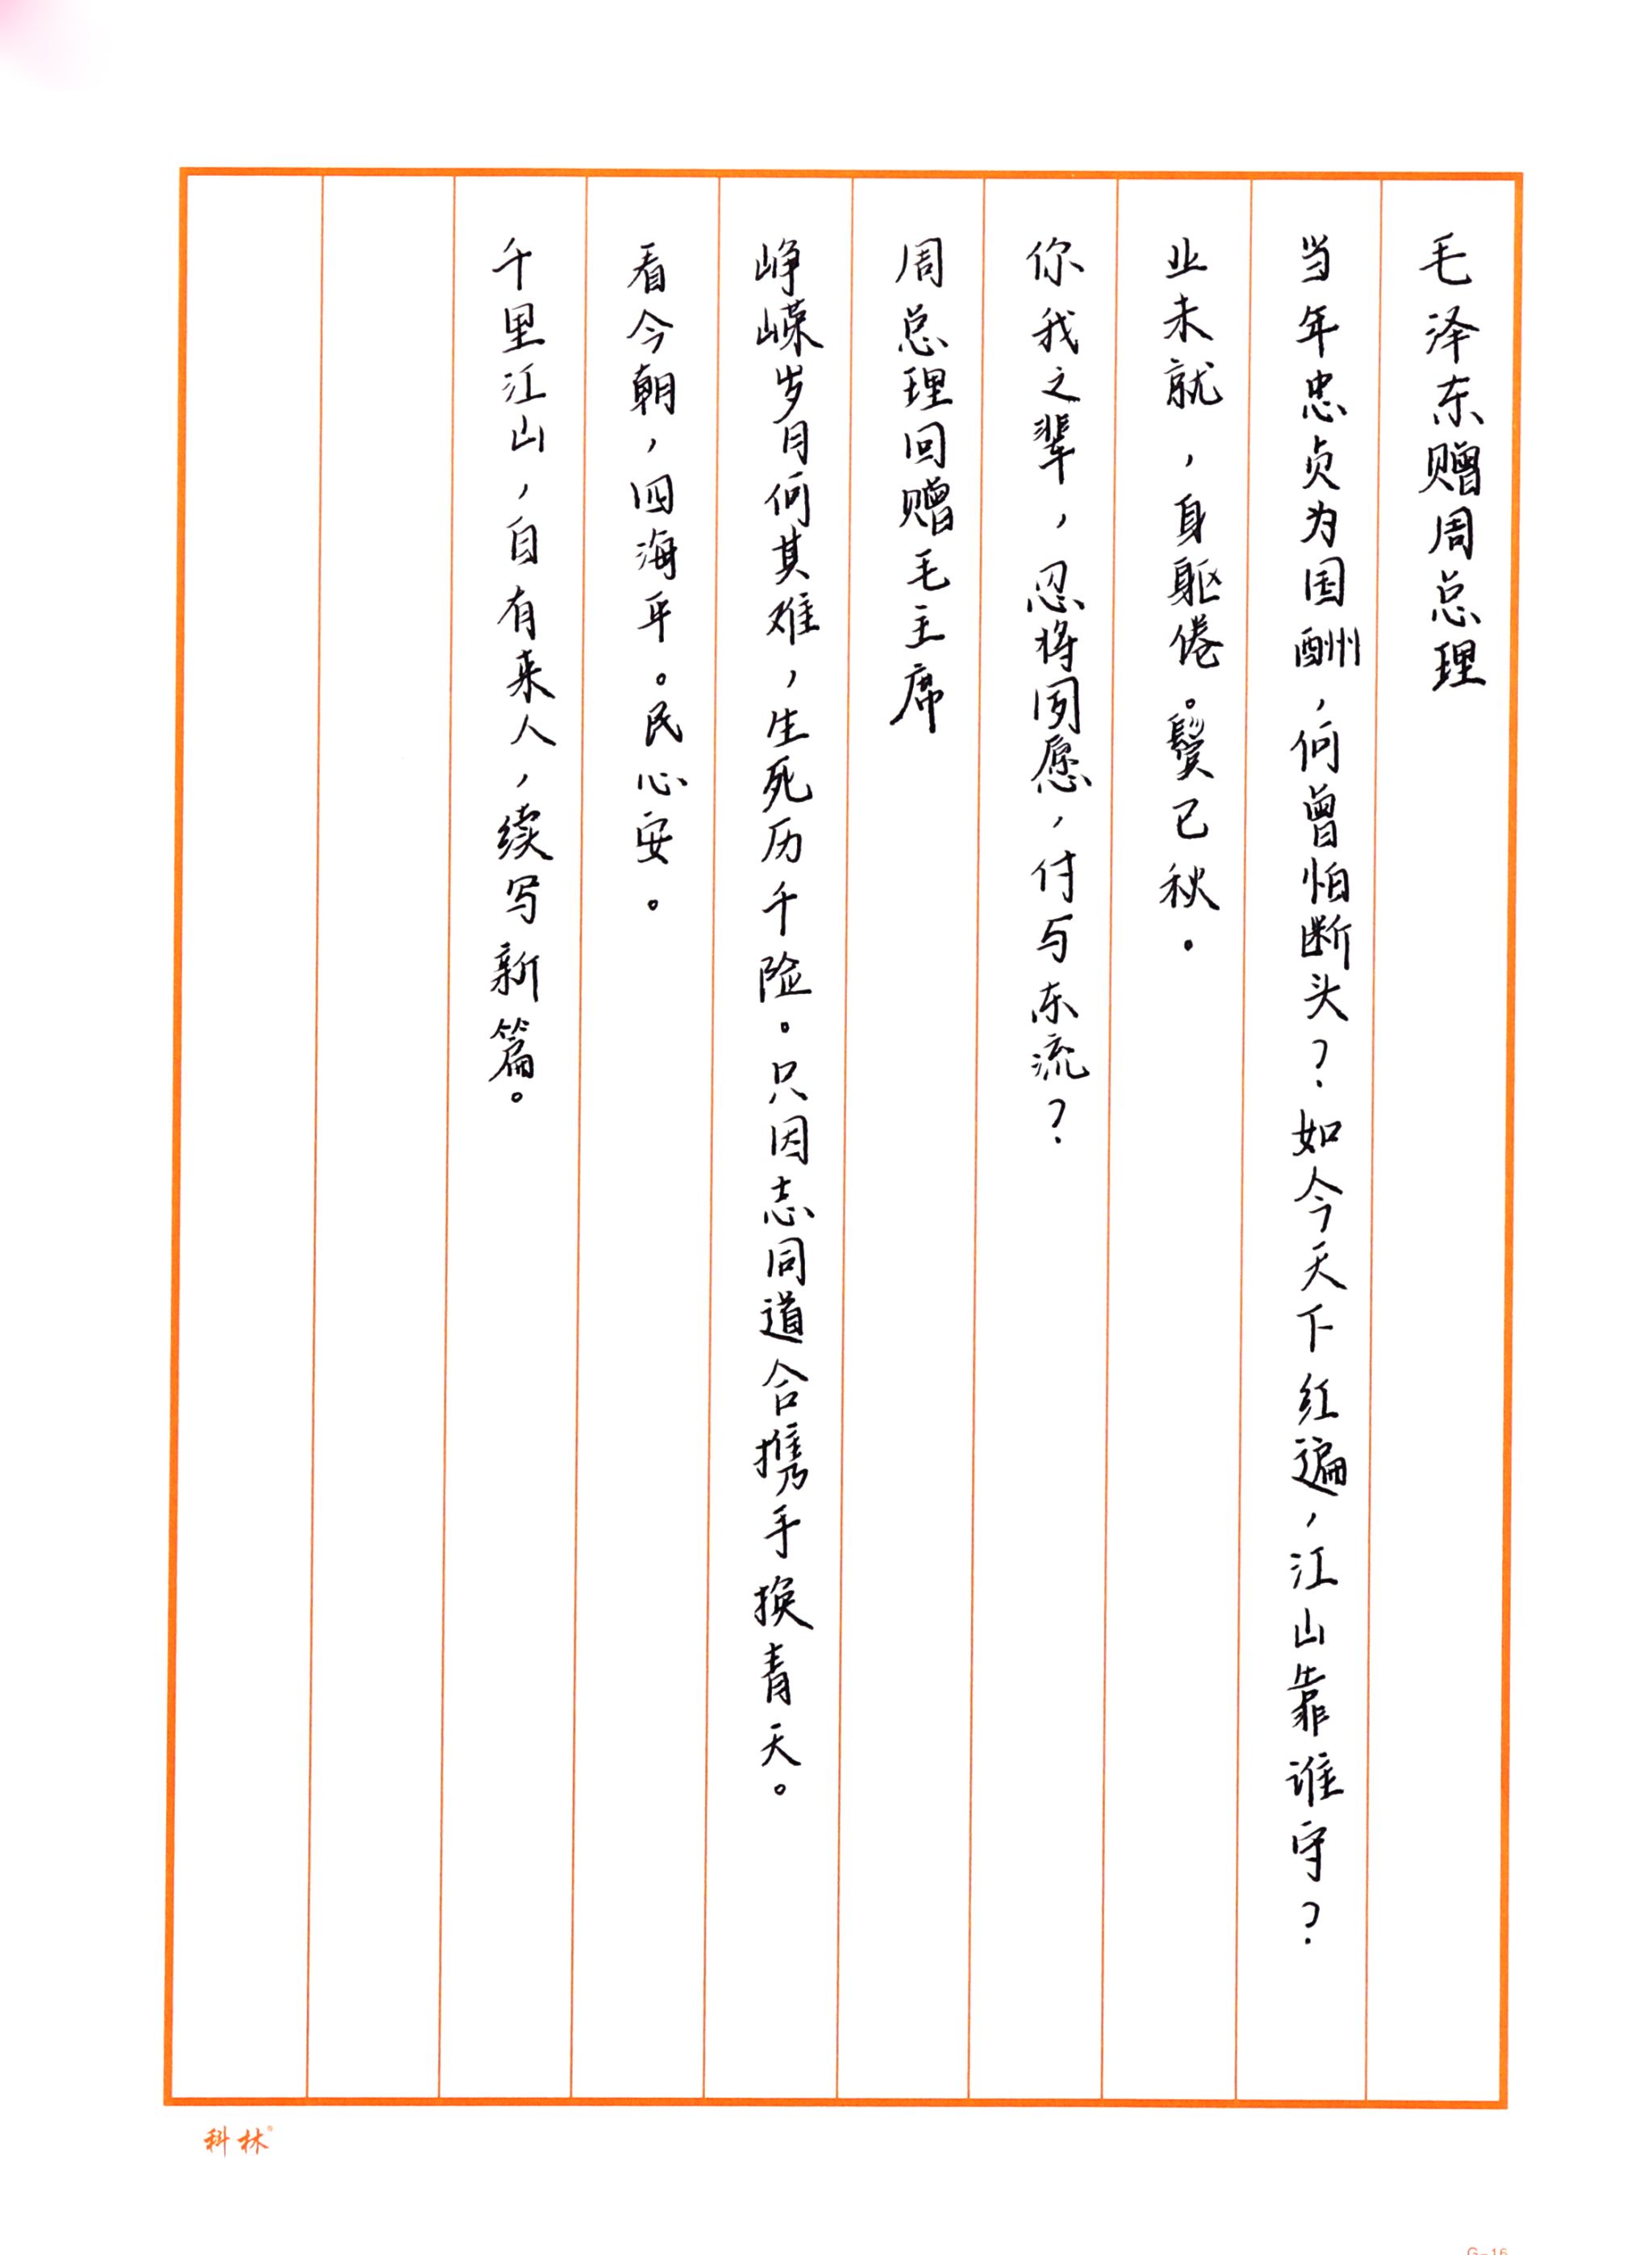 毛泽东赠周总理
当年忠贞为国酬，何曾怕断头？如今天下红遍，江山靠谁守？
业未就，身躯倦。鬓已秋。
你我之辈，忍将夙愿，付与东流？
周总理回赠毛主席
峥嵘岁月何其难，生死历千险。只因志同道合携手换青天。
看今朝，四海平。民心安。
千里江山，自有来人，续写新篇。
科林®
G-16